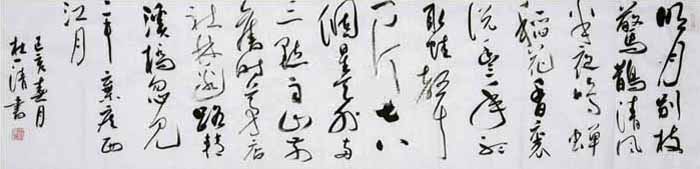 明月别枝
驚鵲清風
半夜鳴蟬
稻花香裏
説豐年聽
取蛙聲
一片七八
個星天外兩
三點雨山前
舊時茅店
社林邊路轉
溪橋忽見
辛棄疾西
江月
己亥春月
杜清書